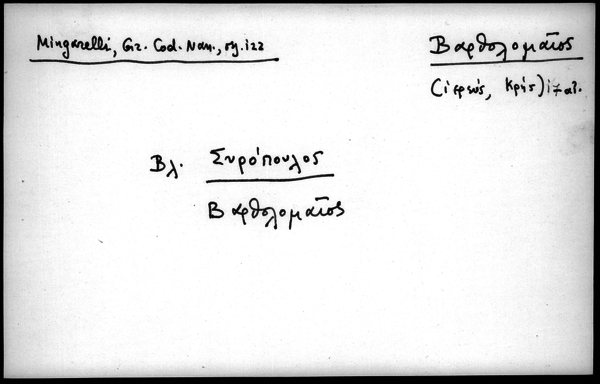 Mingarelli, Gr. Cod. Nan., σχ. 122
Βαρθολομαῖος
(ἱερεύς, Κρής) 17 αἰ.
Βλ. Συρόπουλος
Βαρθολομαῖος